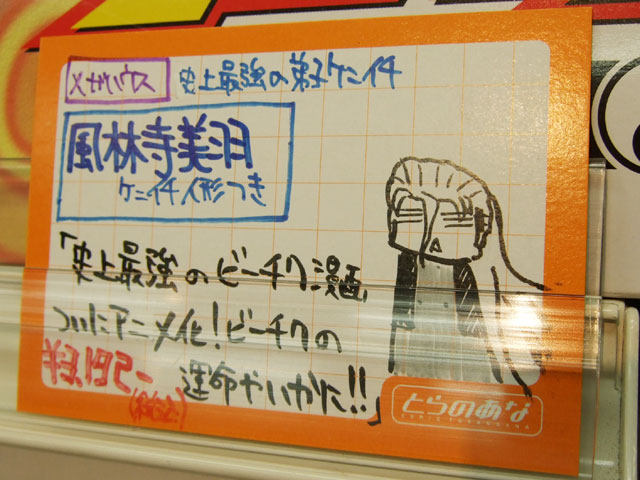 メガハウス 史上最強の弟子ケンイチ
風林寺美羽
ケンイチ人形つき
「史上最強のビーチク漫画、
ついにアニメ化!ビーチクの
運命やいかに!!」
¥3,192-
(税込)
とらのあな